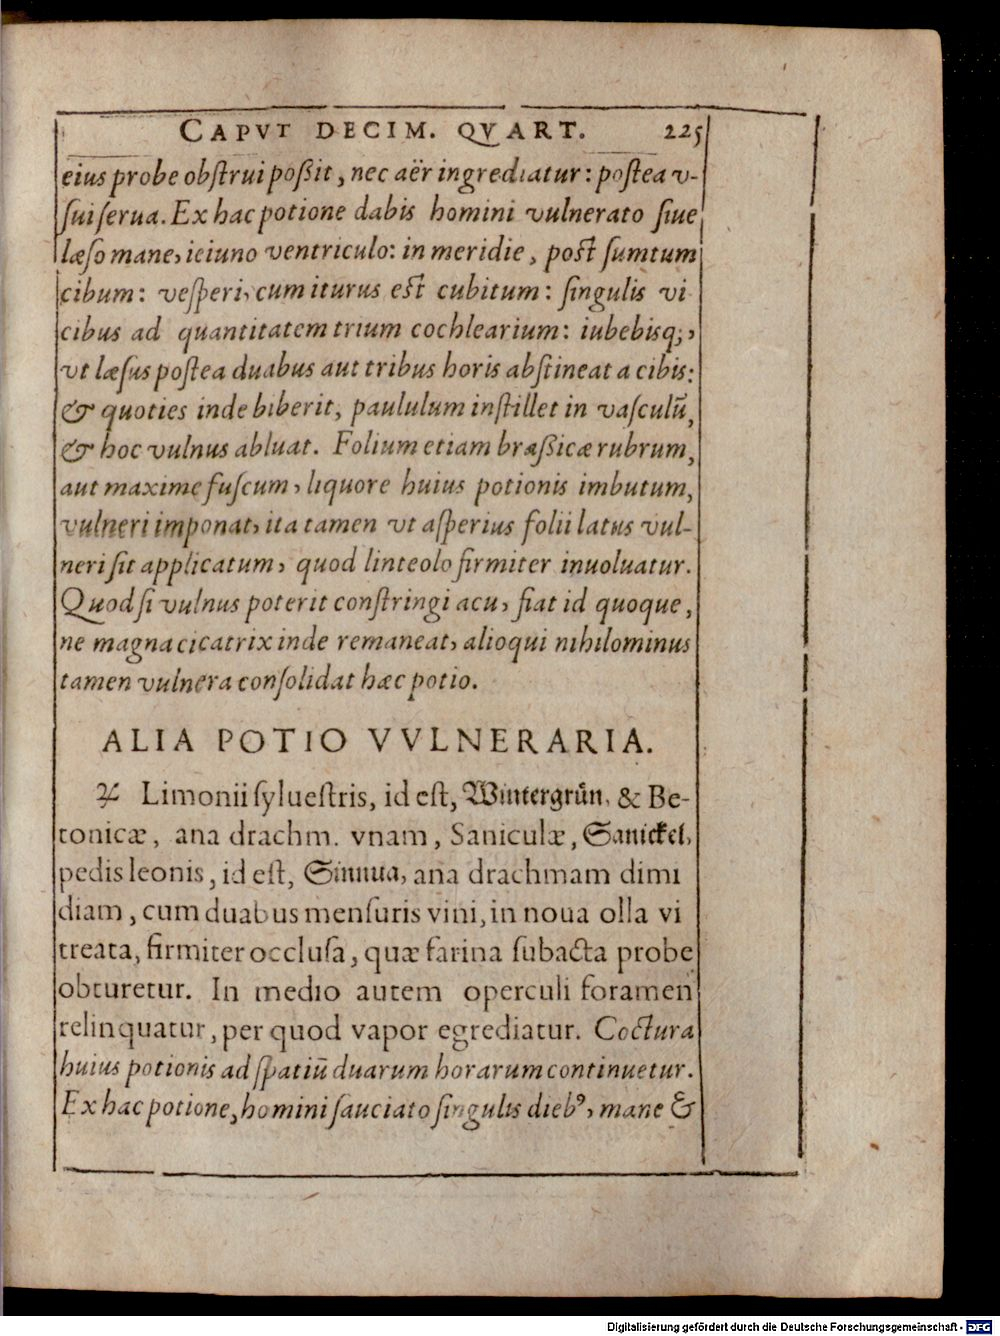 CAPVT DECIM. QVART. 225
eius probe obſtrui poßit, nec aër ingrediatur: poſtea v-
ſui ſerua. Ex hac potione dabis homini vulnerato ſiue
læſo mane, ieiuno ventriculo: in meridie, poſt ſumtum
cibum: veſperi, cum iturus eſt cubitum: ſingulis vi
cibus ad quantitatem trium cochlearium: iubebisq;,
vt læſus poſtea duabus aut tribus horis abſtineat a cibis:
& quoties inde biberit, paululum inſtillet in vaſculũ,
& hoc vulnus abluat. Folium etiam braßicæ rubrum,
aut maxime fuſcum, liquore huius potionis imbutum,
vulneri imponat, ita tamen vt aſperius folii latus vul-
neri ſit applicatum, quod linteolo firmiter inuoluatur.
Quod ſi vulnus poterit conſtringi acu, fiat id quoque,
ne magna cicatrix inde remaneat, alioqui nihilominus
tamen vulnera conſolidat hæc potio.
ALIA POTIO VVLNERARIA.
℞ Limonii ſylueſtris, id eſt, Wintergrün, & Be-
tonicæ, ana drachm. vnam, Saniculæ, Sanickel,
pedis leonis, id eſt, Sinnua, ana drachmam dimi
diam, cum duabus menſuris vini, in noua olla vi
treata, firmiter occluſa, quæ farina ſubacta probe
obturetur. In medio autem operculi foramen
relinquatur, per quod vapor egrediatur. Coctura
huius potionis ad ſpatiũ duarum horarum continuetur.
Ex hac potione, homini ſauciato ſingulis dieb⁹, mane &
Digitalisierung gefördert durch die Deutsche Forschungsgemeinschaft - DFG